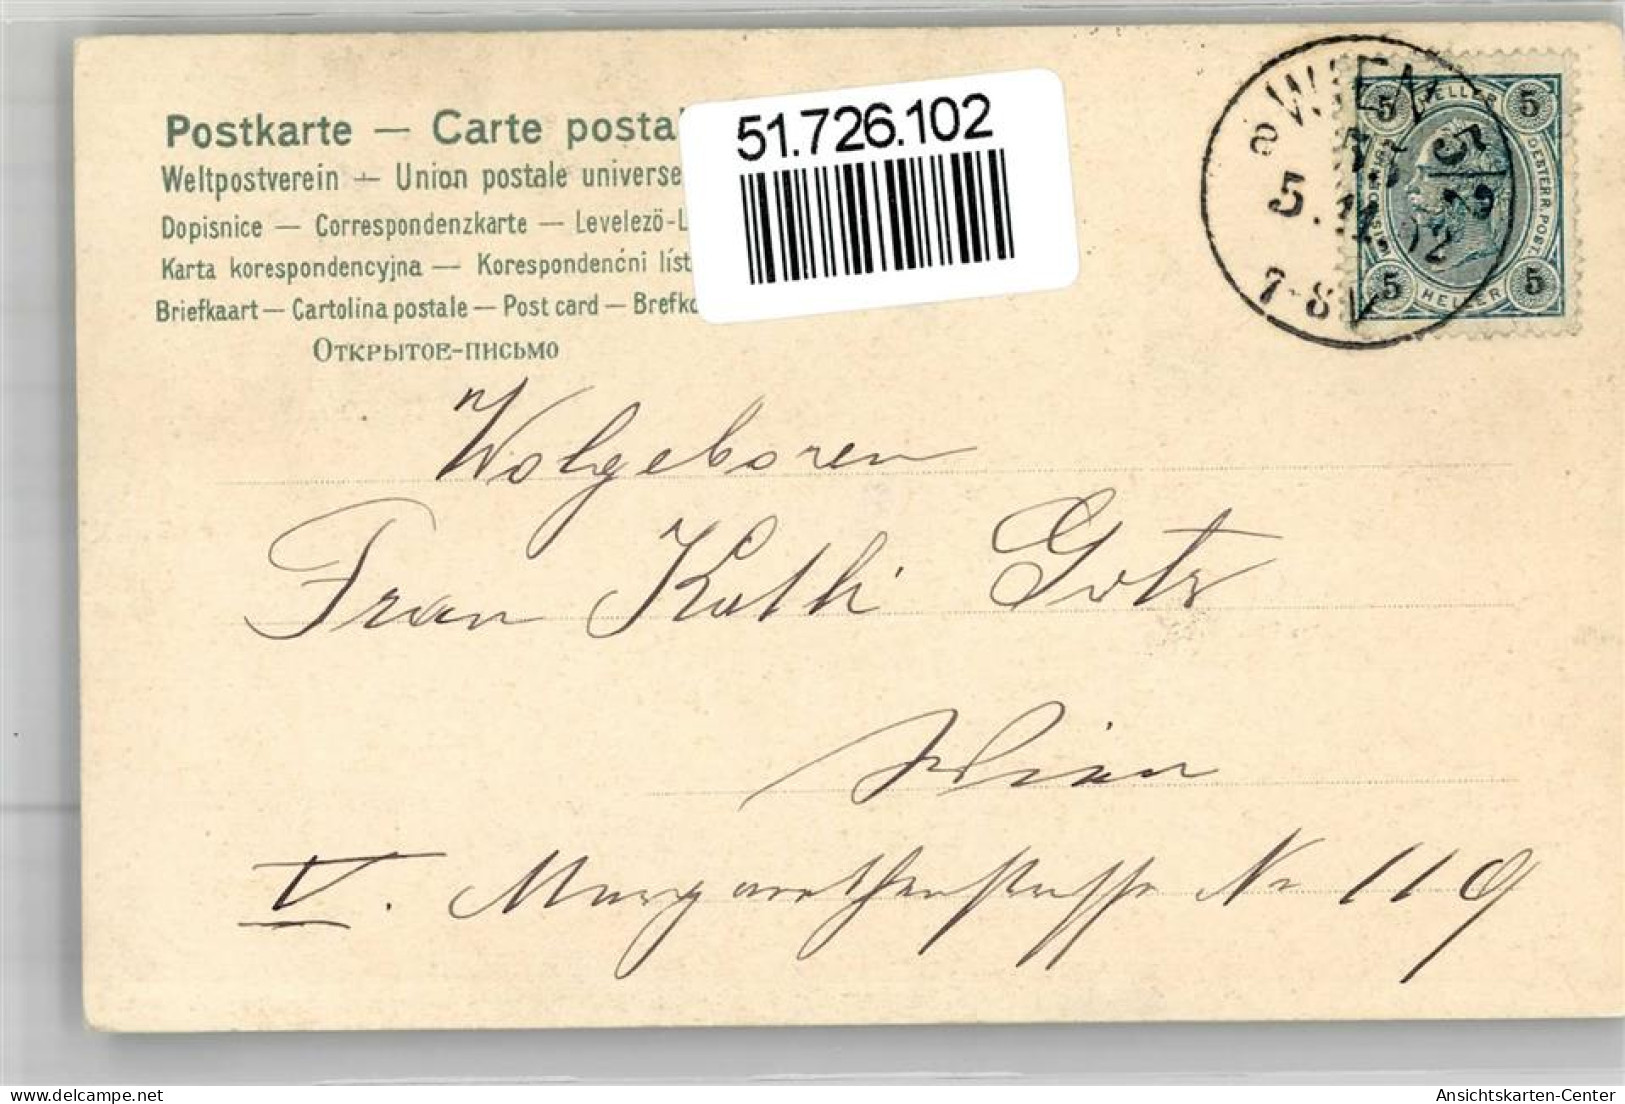 Postkarte — Carte postal
Weltpostverein — Union postale universe
Dopisnice — Correspondenzkarte — Levelezö-L
Karta korespondencyjna — Korespondenčni líst
Briefkaart — Cartolina postale — Post card — Brefko
Открытое-письмо
51.726.102
WIEN
5/2
5. 11. 02
7-8V
5 HELLER 5
OESTERR. POST
5 HELLER 5
Wolgeboren
Frau Kathi Götz
Wien
V. Margarethenstrasse Nr 119
Ansichtskarten-Center